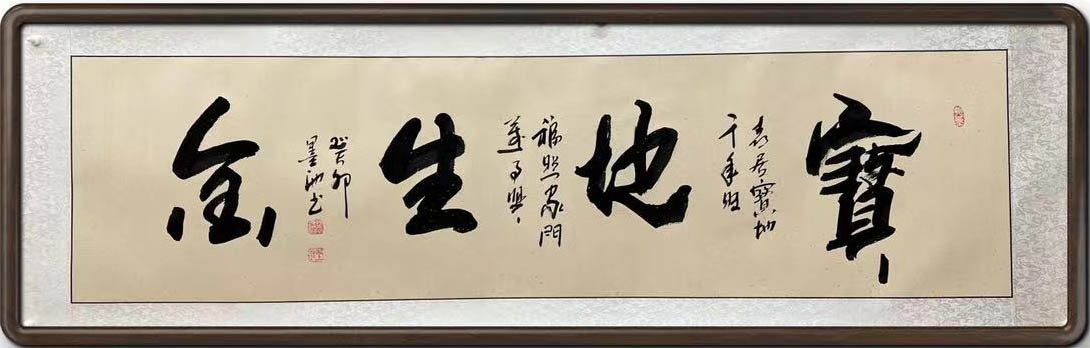 寶
喜居寶地
千年旺
地
福照家門
萬事興
生
癸卯
墨池書
金